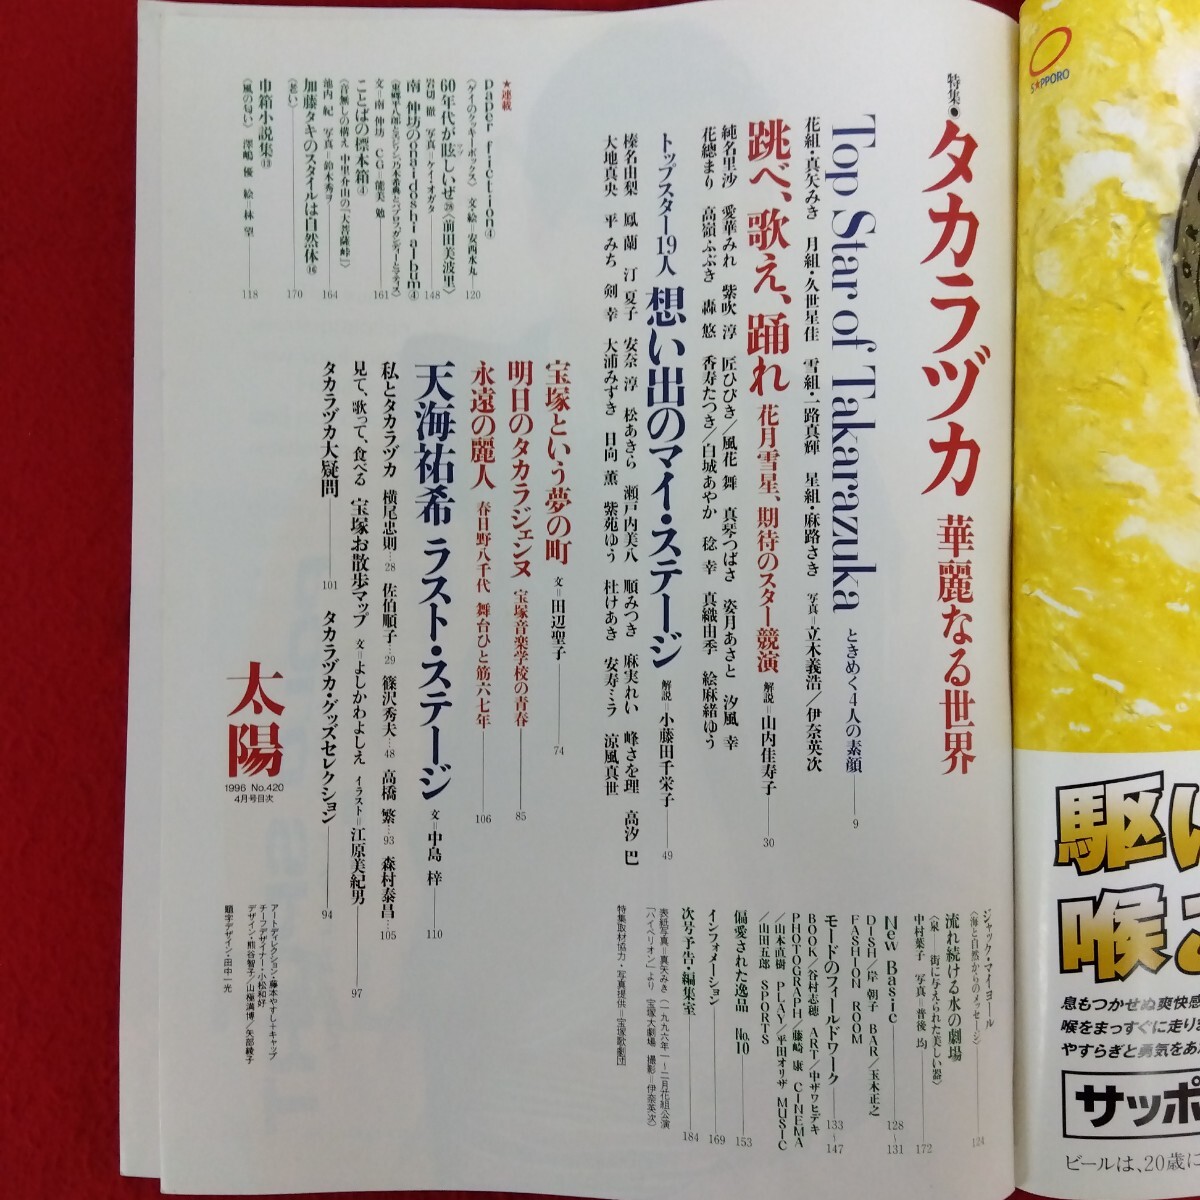 特集・タカラヅカ 華麗なる世界
Top Star of Takarazuka ときめく4人の素顔 9
花組・真矢みき 月組・久世星佳 雪組・一路真輝 星組・麻路さき 写真=立木義浩/伊奈英次
跳べ、歌え、踊れ 花月雪星、期待のスター競演 解説=山内佳寿子 30
純名里沙 愛華みれ 紫吹 淳 匠ひびき/風花 舞 真琴つばさ 姿月あさと 汐風 幸
花總まり 高嶺ふぶき 轟 悠 香寿たつき/白城あやか 稔 幸 真織由季 絵麻緒ゆう
トップスター19人 想い出のマイ・ステージ 解説=小藤田千栄子 49
榛名由梨 鳳 蘭 汀 夏子 安奈 淳 松あきら 瀬戸内美八 順みつき 麻実れい 峰さを理 高汐 巴
大地真央 平 みち 剣 幸 大浦みずき 日向 薫 紫苑ゆう 杜けあき 安寿ミラ 涼風真世
宝塚という夢の町 文=田辺聖子 74
明日のタカラジェンヌ 宝塚音楽学校の青春 85
永遠の麗人 春日野八千代 舞台ひと筋六七年 106
天海祐希 ラスト・ステージ 文=中島 梓 110
私とタカラヅカ 横尾忠則…28 佐伯順子…29 篠沢秀夫…48 高橋 繁…93 森村泰昌…105
見て、歌って、食べる 宝塚お散歩マップ 文=よしかわよしえ イラスト=江原美紀男 97
タカラヅカ大疑問 101 タカラヅカ・グッズセレクション 94
★連載
paper friction④
〈ゲイのクッキーボックス〉 文・絵=安西水丸 120
60年代が眩しいぜ㉘〈前田美波里〉
岩切 徹 写真=ケイ・オガタ 148
南 伸坊のonnidoshi album④
文=南 伸坊 CG=能美 勉 161
ことばの標本箱④
〈音無しの構え 中里介山の「大菩薩峠」〉
池内 紀 写真=鈴木秀ヲ 164
加藤タキのスタイルは自然体⑯
〈老い〉 170
巾箱小説集⑬
〈風の匂い〉 澤嶋 優 絵 林 望 118
太陽
1996 No.420
4月号目次
ジャック・マイヨール
〈海と自然からのメッセージ〉 124
流れ続ける水の劇場
〈泉——街に与えられた美しい器〉
中村葉子 写真=普後 均 172
New Basic 128〜131
DISH/岸 朝子 BAR/玉木正之
FASHION ROOM
モードのフィールドワーク 133〜147
BOOK/谷村志穂 ART/中ザワヒデキ
PHOTOGRAPH/藤崎 康 CINEMA
/山本直樹 PLAY/平田オリザ MUSIC
/山田五郎 SPORTS
偏愛された逸品 No.10 153
インフォメーション 169
次号予告・編集室 184
表紙写真=真矢みき(一九九六年一〜二月花組公演
「ハイペリオン」より 宝塚大劇場 撮影=伊奈英次)
特集取材協力・写真提供=宝塚歌劇団
アートディレクション・藤本やすし+キャップ
チーフデザイナー・小松和好
デザイン・熊谷智子/山極満博/矢部綾子
題字デザイン・田中一光
SAPPORO
駆け
喉ご
息もつかせぬ爽快感
喉をまっすぐに走り
やすらぎと勇気をあ
サッポ
ビールは、20歳に